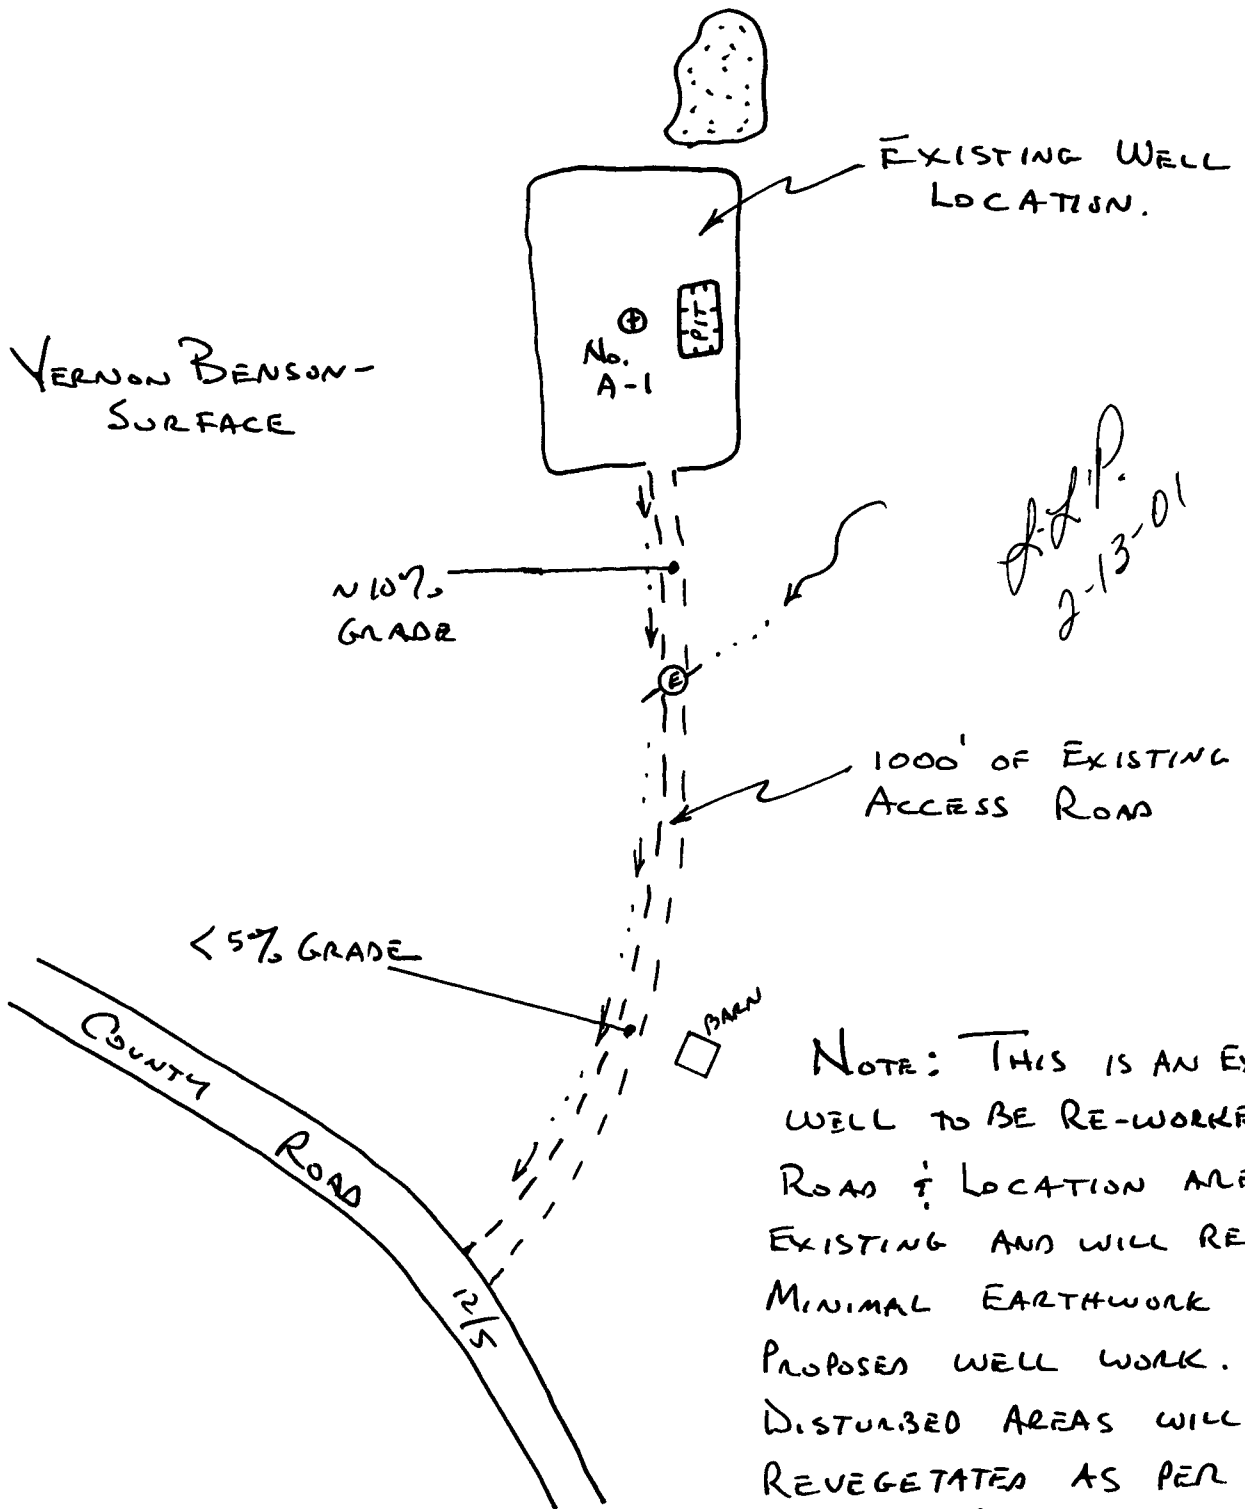 EXISTING WELL
LOCATION.
PIT
No.
A-1
VERNON BENSON-
SURFACE
J.L.P.
2-13-01
~10%
GRADE
E
1000' OF EXISTING
ACCESS ROAD
<5% GRADE
BARN
COUNTY ROAD 12/5
NOTE: THIS IS AN EX
WELL TO BE RE-WORKE
ROAD & LOCATION ARE
EXISTING AND WILL RE
MINIMAL EARTHWORK
PROPOSED WELL WORK.
DISTURBED AREAS WILL
REVEGETATED AS PER